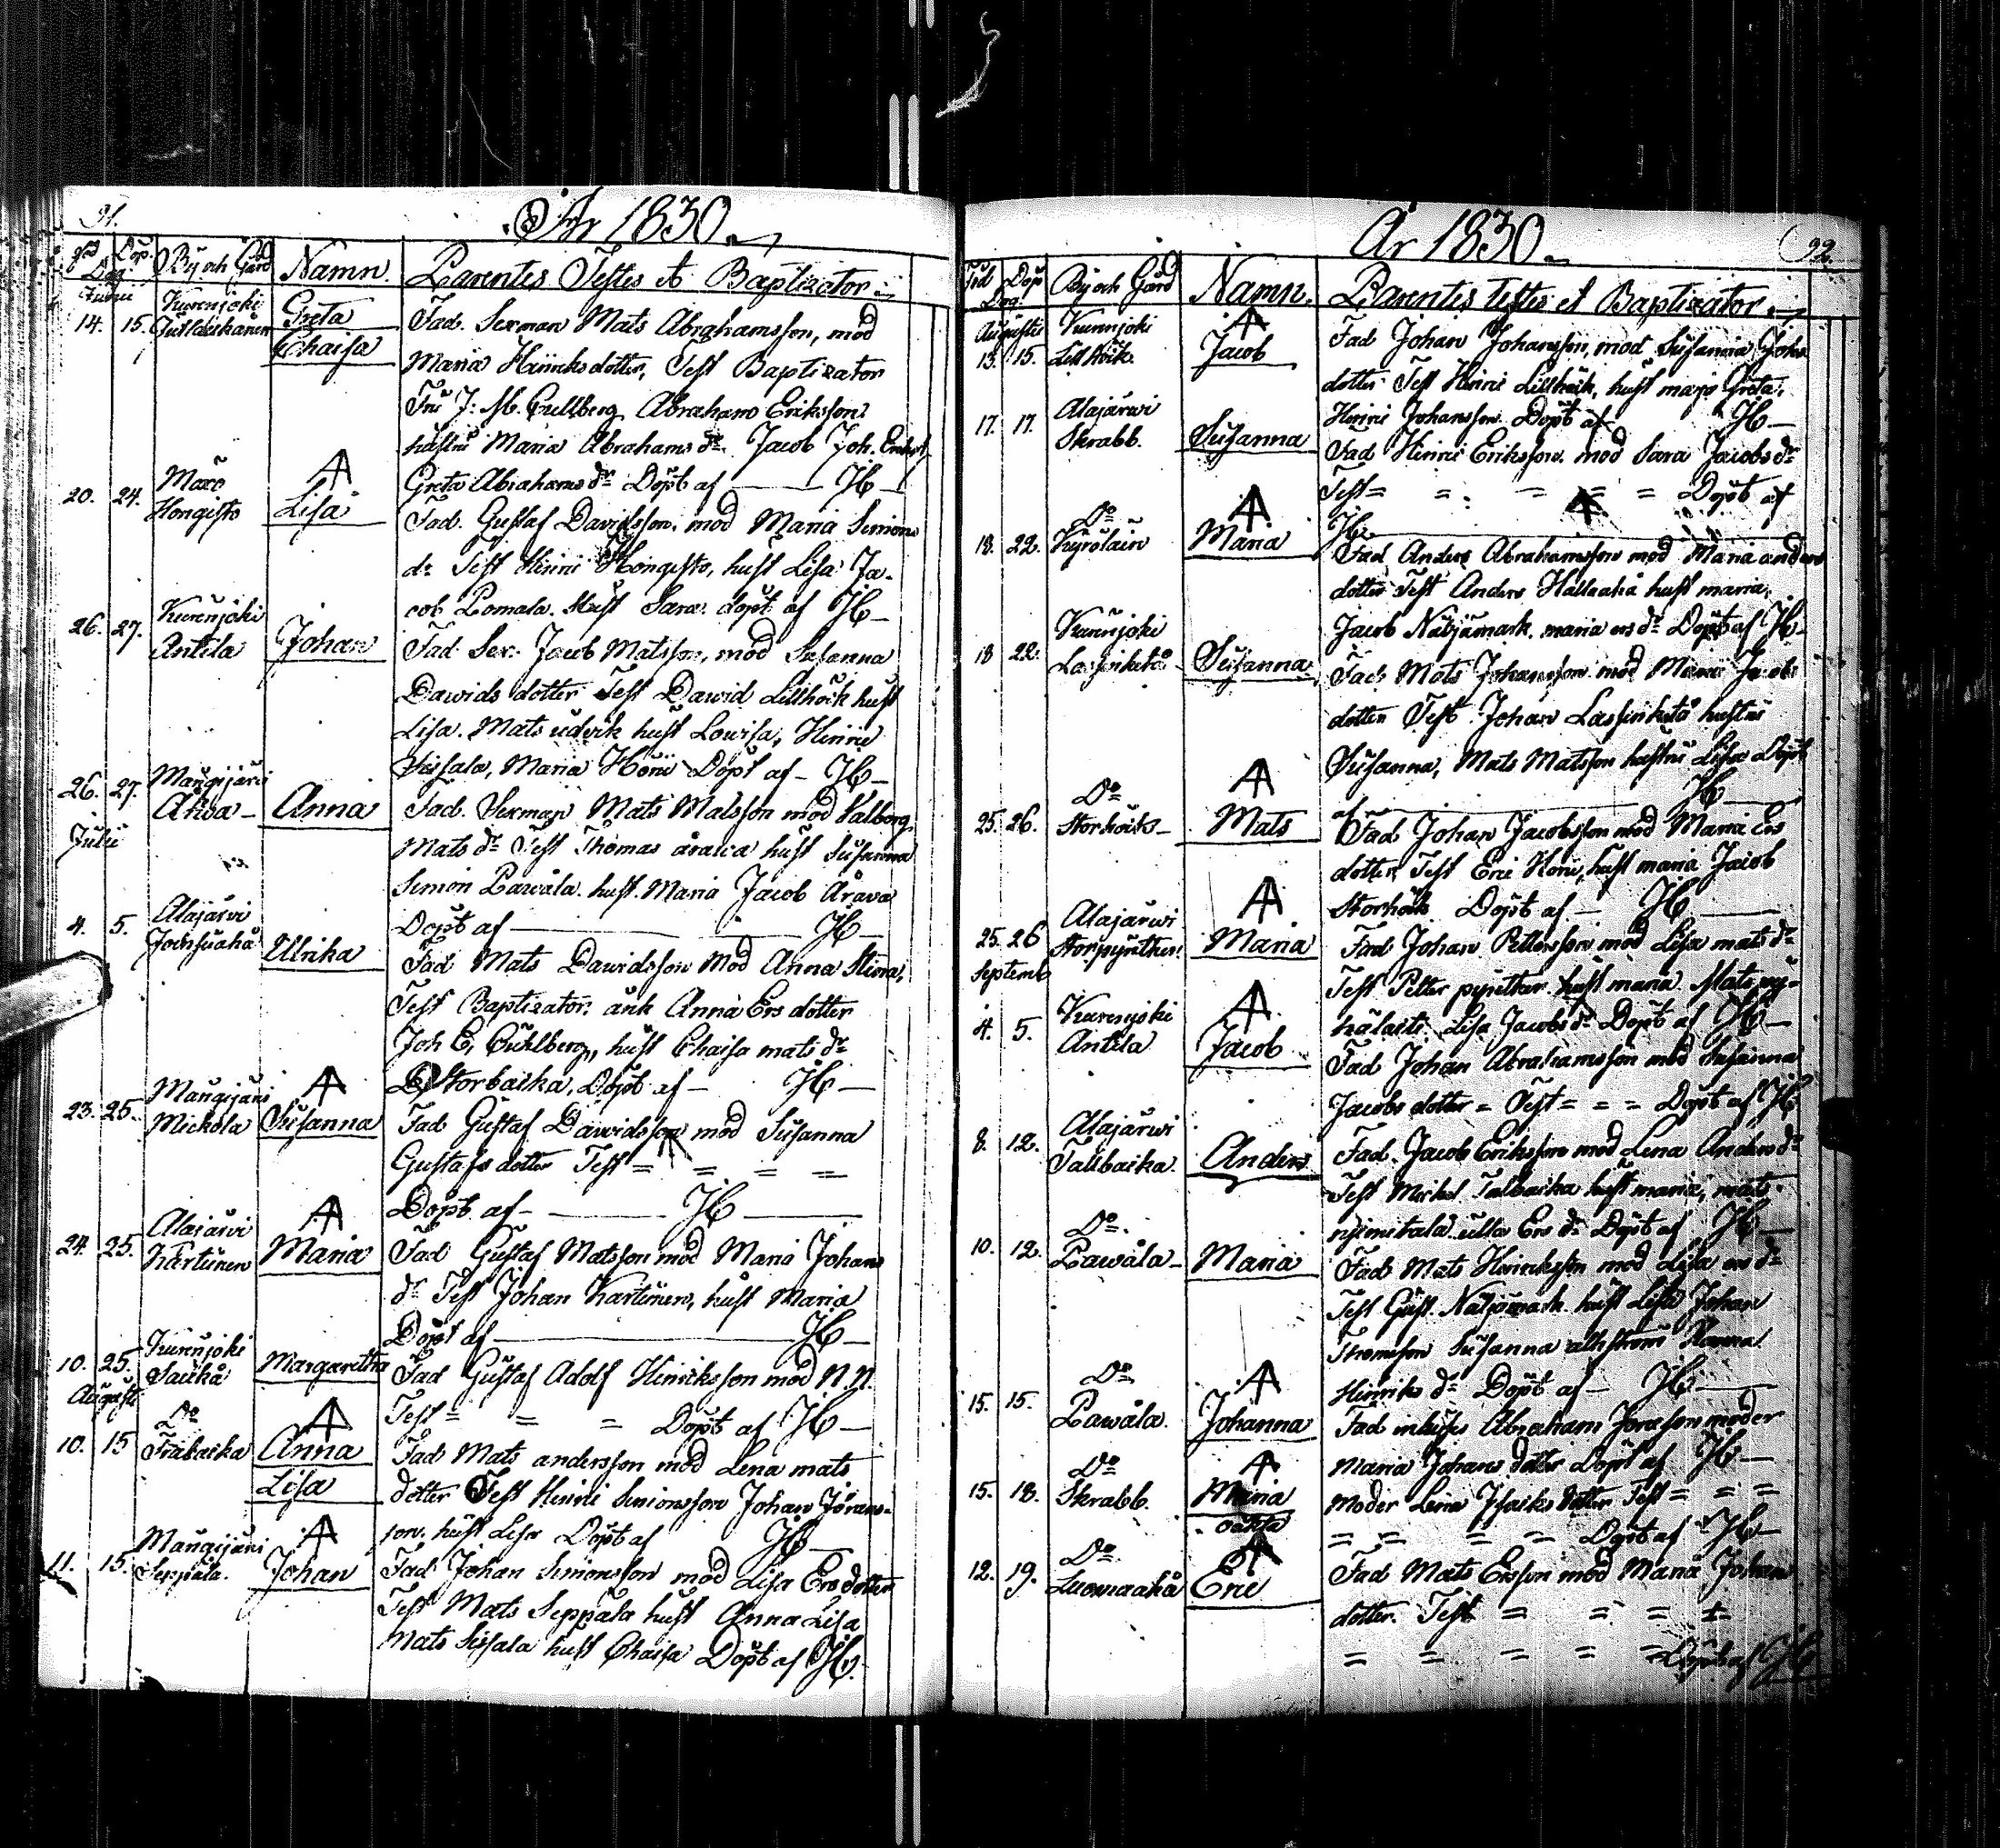 91.
År 1830.
Dop.
Dag
By och Gård
Namn.
Parentes Testes et Baptizator
Junii
14. 15. Kurenjoki
Greta
Chaisa
Fad. Sexman Mats Abrahamsson, mod
Maria Hinriksdotter, Test Baptizator
Abraham Eriksson
hustru Maria Abrahams dr. Jacob Joh.
Greta Abrahams dr Döpt af — JH —
20. 24. Hongisto
Lisa
Fad. Gustaf Davidsson, mod Maria Simons
dr Test Hinric Hongisto, hust Lisa Ja-
cob Pomala. Hust Sara. döpt af JH —
26. 27. Kurenjoki
Antila
Johan
Fad. Sex. Jacob Matsson, mod Susanna
Davids dotter Test David Lillhöik hust
Lisa. Mats hust Lovisa, Hinric
Sissala, Maria Döpt af — JH —
26. 27. Mangijärvi
Anna
Fad. Sexman Mats Matsson mod Valborg
Mats dr Test Thomas årava hust Susanna
Simon Pavåla. hust. Maria Jacob Årava
Döpt af — JH —
Julii
4. 5. Alajärvi
Ullrika
Fad Mats Davidsson Mod Anna Stina,
Test Baptizator. änk Anna Ers dotter
Joh E, hust Chaisa mats dr
Storbacka, Döpt af — JH —
23. 25. Mangijärvi
Mickola
Susanna
Fad Gustaf Davidsson mod Susanna
Gustafs dotter Test = = = =
Döpt af — JH —
24. 25. Alajärvi
Kartunen
Maria
Fad Gustaf Matsson mod Maria Johans
dr Test Johan Kartunen, hust Maria
Döpt af — JH —
10. 25. Kurenjoki
Saukå
Margaretha
Fad Gustaf Adolf Hinriksson mod N.N.
Test = = = Döpt af JH —
Augusti
10. 15 Do
Träbacka
Anna
Lisa
Fad Mats andersson mod Lena mats
dotter Test Hinric Simonsson Johan Jörans-
son. hust Lisa Döpt af JH —
11. 15. Mangijärvi
Seppåla.
Johan
Fad Johan Simonsson mod Lisa Ers dotter
Test Mats Seppåla hust Anna Lisa
Mats Sissala hust Chaisa Döpt af JH.
År 1830.
92.
Föd Döp
Dag
By och Gård
Namn.
Parentes testes et Baptizator.
Augusti
13. 15. Kurenjoki
Lillhöik
Jacob
Fad Johan Johansson, mod Susanna Johs
dotter Test Hinric Lillhöik, hust maja Greta.
Hinric Johansson Döpt af JH —
17. 17. Alajärvi
Skrabb.
Susanna
Fad Hinric Eriksson mod Sara Jacobs dr
Test = = = = = Döpt af
JH
18. 22. Do
Kyrolain
Maria
Fad Anders Abrahamsson mod Maria anders
dotter Test Anders hust maria,
Jacob Näsjämark. maria ers dr Döpt af JH —
18 22. Kurenjoki
Susanna
Fad Mats Johansson mod Maria Jacobs
dotter Test Johan hustru
Susanna, Mats Matsson hustru Lisa Döpt
af — JH —
25. 26. Do
Storhöik
Mats
Fad Johan Jacobsson mod Maria Ers
dotter Test Eric hust maria Jacob
Storhöik Döpt af — JH —
25. 26 Alajärvi
Maria
Fad Johan Pettersson mod Lisa mats dr
Test Petter hust maria Mats
Lisa Jacobs dr Döpt af JH —
Septemb
4. 5. Kurenjoki
Antila
Jacob
Fad Johan Abrahamsson mod Susanna
Jacobs dotter = Test = = = Döpt af JH
8. 12. Alajärvi
Tallbacka
Anders
Fad. Jacob Eriksson mod Lena Anders dr
Test Mickel Tallbacka hust maria, mats
ulla Ers dr Döpt af JH —
10. 12. Do
Pavåla
Maria
Fad Mats Hinriksson mod Lisa ers dr
Test Gust. Näsjömark hust Lisa Johan
Thomsson Susanna
Hinriks dr Döpt af — JH —
15. 15. Do
Pavåla
Johanna
Fad Abraham moder
Maria Johans dotter Döpt af JH —
15. 18. Do
Skrabb.
Maria
oäkta
Moder Lena Isacks dotter Test = = =
= = = = Döpt af JH —
12. 19. Do
Luomaahå
Eric
Fad Mats Ersson mod Maria Johans
dotter. Test = = = =
= = = = = Döpt af JH